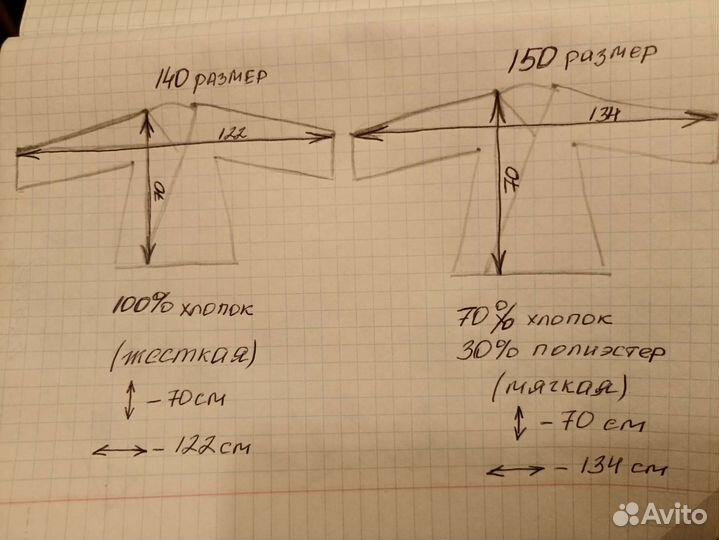 140 размер
122
70
100% хлопок
(жесткая)
↕ - 70 см
↔ - 122 см
150 размер
134
70
70% хлопок
30% полиэстер
(мягкая)
↕ - 70 см
↔ - 134 см
Avito